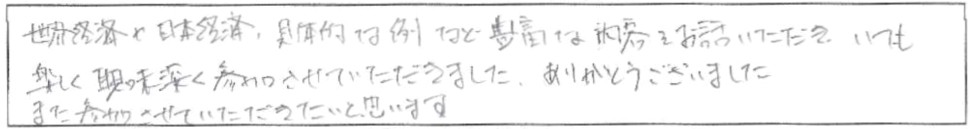 世界経済や日本経済、具体的な例など豊富な内容をお話いただき いつも
楽しく興味深く参加させていただきました。ありがとうございました
また参加させていただきたいと思います